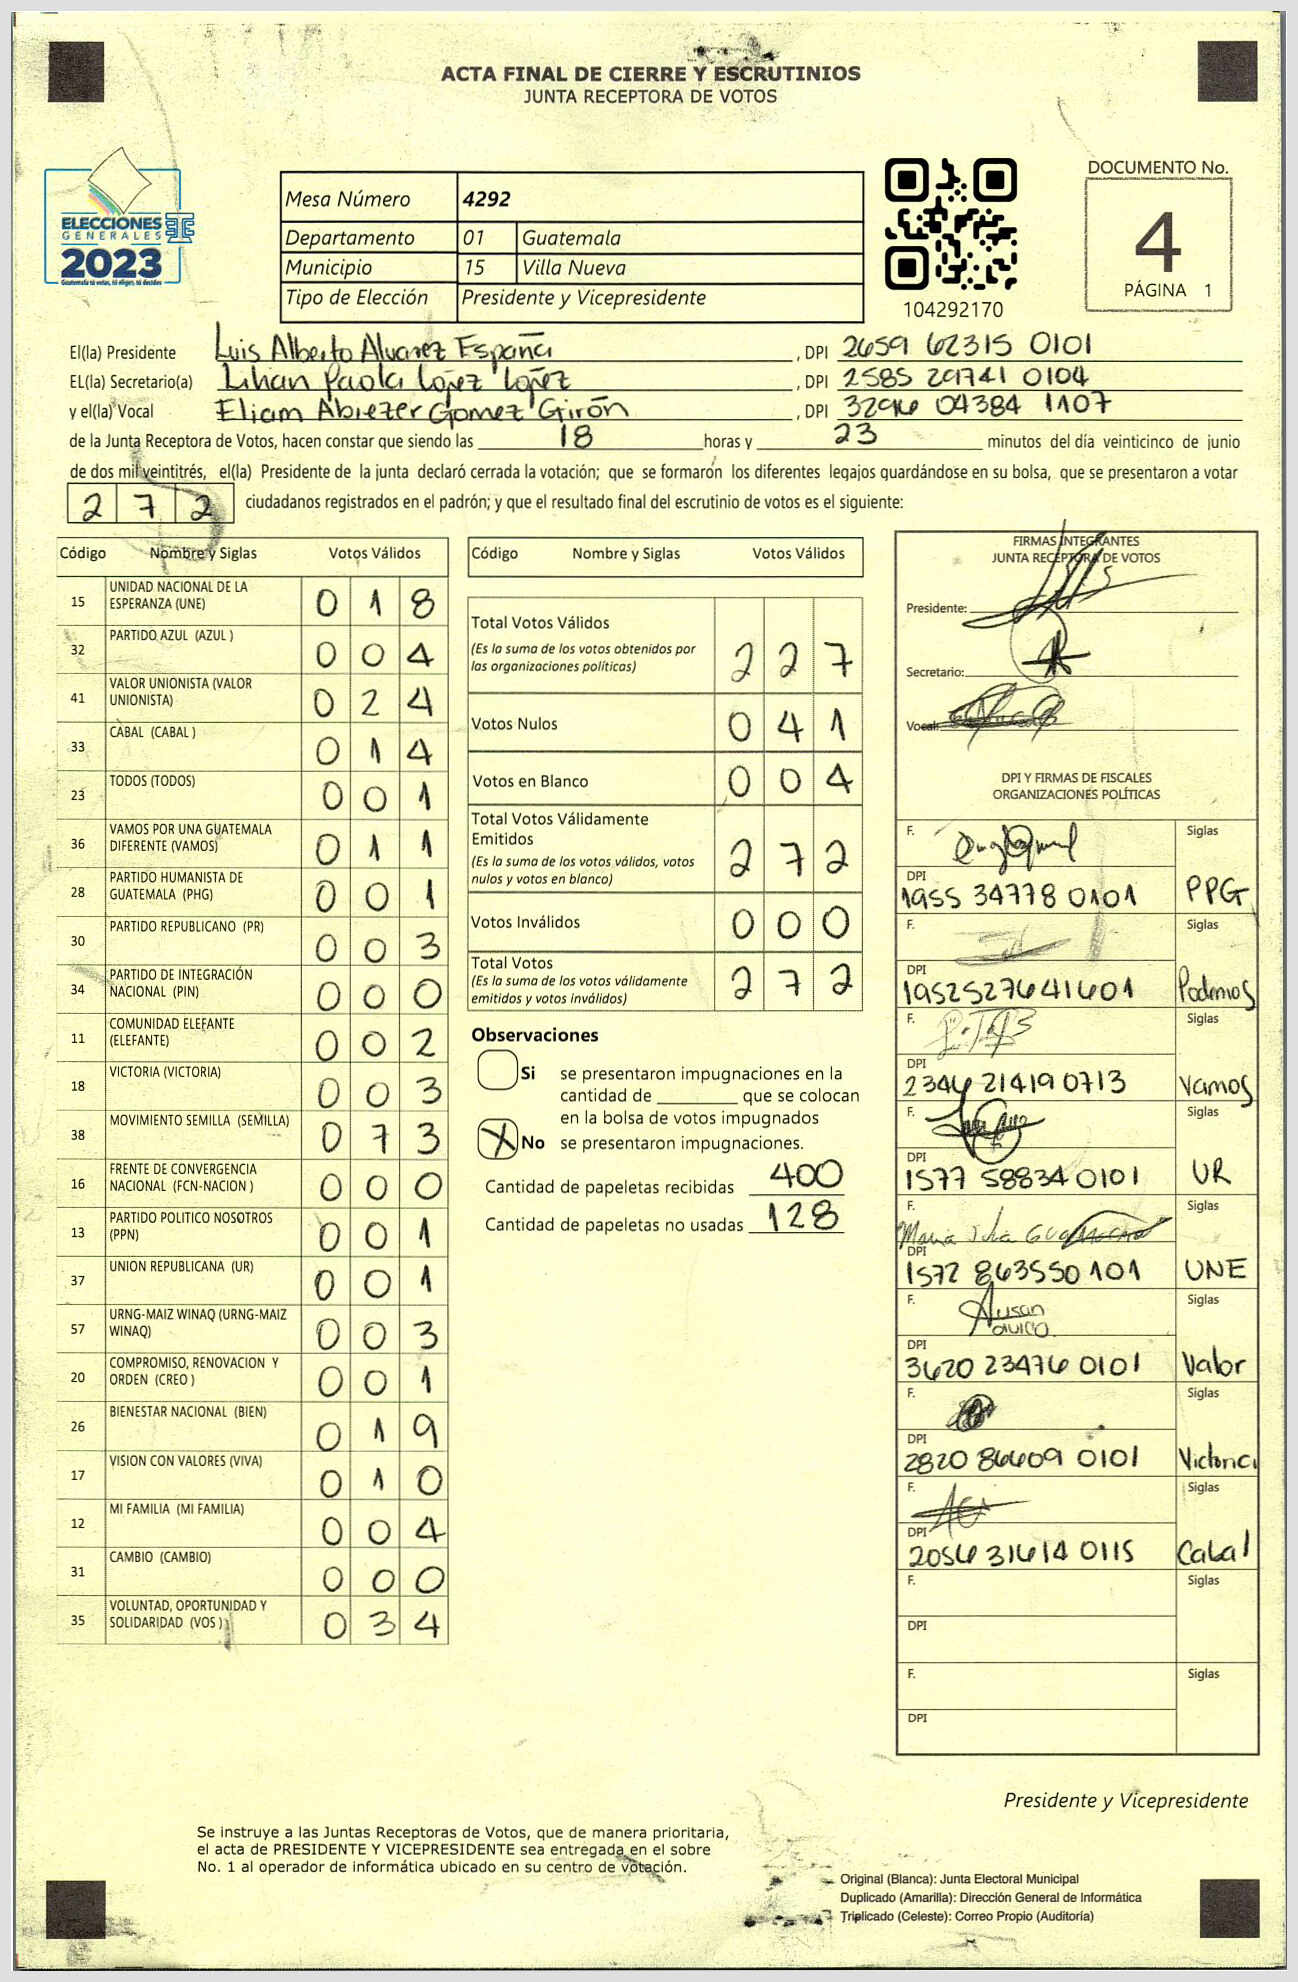 ACTA FINAL DE CIERRE Y ESCRUTINIOS
JUNTA RECEPTORA DE VOTOS
ELECCIONES
GENERALES
2023
Guatemala tú votas, tú eliges, tú decides
Mesa Número 4292
Departamento 01 Guatemala
Municipio 15 Villa Nueva
Tipo de Elección Presidente y Vicepresidente
104292170
DOCUMENTO No.
4
PÁGINA 1
El(la) Presidente Luis Alberto Alvarez España , DPI 2659 62315 0101
EL(la) Secretario(a) Lilian Paola López López , DPI 2585 29741 0104
y el(la) Vocal Eliam Abiezer Gomez Girón , DPI 3296 04384 1107
de la Junta Receptora de Votos, hacen constar que siendo las 18 horas y 23 minutos del día veinticinco de junio
de dos mil veintitrés, el(la) Presidente de la junta declaró cerrada la votación; que se formarón los diferentes legajos guardándose en su bolsa, que se presentaron a votar
272 ciudadanos registrados en el padrón; y que el resultado final del escrutinio de votos es el siguiente:
Código Nombre y Siglas Votos Válidos
15 UNIDAD NACIONAL DE LA ESPERANZA (UNE) 018
32 PARTIDO AZUL (AZUL ) 004
41 VALOR UNIONISTA (VALOR UNIONISTA) 024
33 CABAL (CABAL ) 014
23 TODOS (TODOS) 001
36 VAMOS POR UNA GUATEMALA DIFERENTE (VAMOS) 011
28 PARTIDO HUMANISTA DE GUATEMALA (PHG) 001
30 PARTIDO REPUBLICANO (PR) 003
34 PARTIDO DE INTEGRACIÓN NACIONAL (PIN) 000
11 COMUNIDAD ELEFANTE (ELEFANTE) 002
18 VICTORIA (VICTORIA) 003
38 MOVIMIENTO SEMILLA (SEMILLA) 073
16 FRENTE DE CONVERGENCIA NACIONAL (FCN-NACION ) 000
13 PARTIDO POLITICO NOSOTROS (PPN) 001
37 UNION REPUBLICANA (UR) 001
57 URNG-MAIZ WINAQ (URNG-MAIZ WINAQ) 003
20 COMPROMISO, RENOVACION Y ORDEN (CREO ) 001
26 BIENESTAR NACIONAL (BIEN) 019
17 VISION CON VALORES (VIVA) 010
12 MI FAMILIA (MI FAMILIA) 004
31 CAMBIO (CAMBIO) 000
35 VOLUNTAD, OPORTUNIDAD Y SOLIDARIDAD (VOS ) 034
Código Nombre y Siglas Votos Válidos
Total Votos Válidos 227
(Es la suma de los votos obtenidos por
las organizaciones políticas)
Votos Nulos 041
Votos en Blanco 004
Total Votos Válidamente
Emitidos 272
(Es la suma de los votos válidos, votos
nulos y votos en blanco)
Votos Inválidos 000
Total Votos 272
(Es la suma de los votos válidamente
emitidos y votos inválidos)
Observaciones
Si se presentaron impugnaciones en la
cantidad de ________ que se colocan
en la bolsa de votos impugnados
X No se presentaron impugnaciones.
Cantidad de papeletas recibidas 400
Cantidad de papeletas no usadas 128
FIRMAS INTEGRANTES
JUNTA RECEPTORA DE VOTOS
Presidente:
Secretario:
Vocal:
DPI Y FIRMAS DE FISCALES
ORGANIZACIONES POLÍTICAS
F. Siglas
DPI 1955 34778 0101 PPG
F. Siglas
DPI 1952527641601 Podemos
F. Siglas
DPI 2346 21419 0713 Vamos
F. Siglas
DPI 1577 58834 0101 UR
F. Maria Siglas
DPI 1572 86355 0101 UNE
F. Susan Siglas
DPI 3620 23476 0101 Valor
F. Siglas
DPI 2820 86609 0101 Victoria
F. Siglas
DPI 2056 31614 0115 Cabal
F. Siglas
DPI
F. Siglas
DPI
Presidente y Vicepresidente
Se instruye a las Juntas Receptoras de Votos, que de manera prioritaria,
el acta de PRESIDENTE Y VICEPRESIDENTE sea entregada en el sobre
No. 1 al operador de informática ubicado en su centro de votación.
Original (Blanca): Junta Electoral Municipal
Duplicado (Amarilla): Dirección General de Informática
Triplicado (Celeste): Correo Propio (Auditoría)